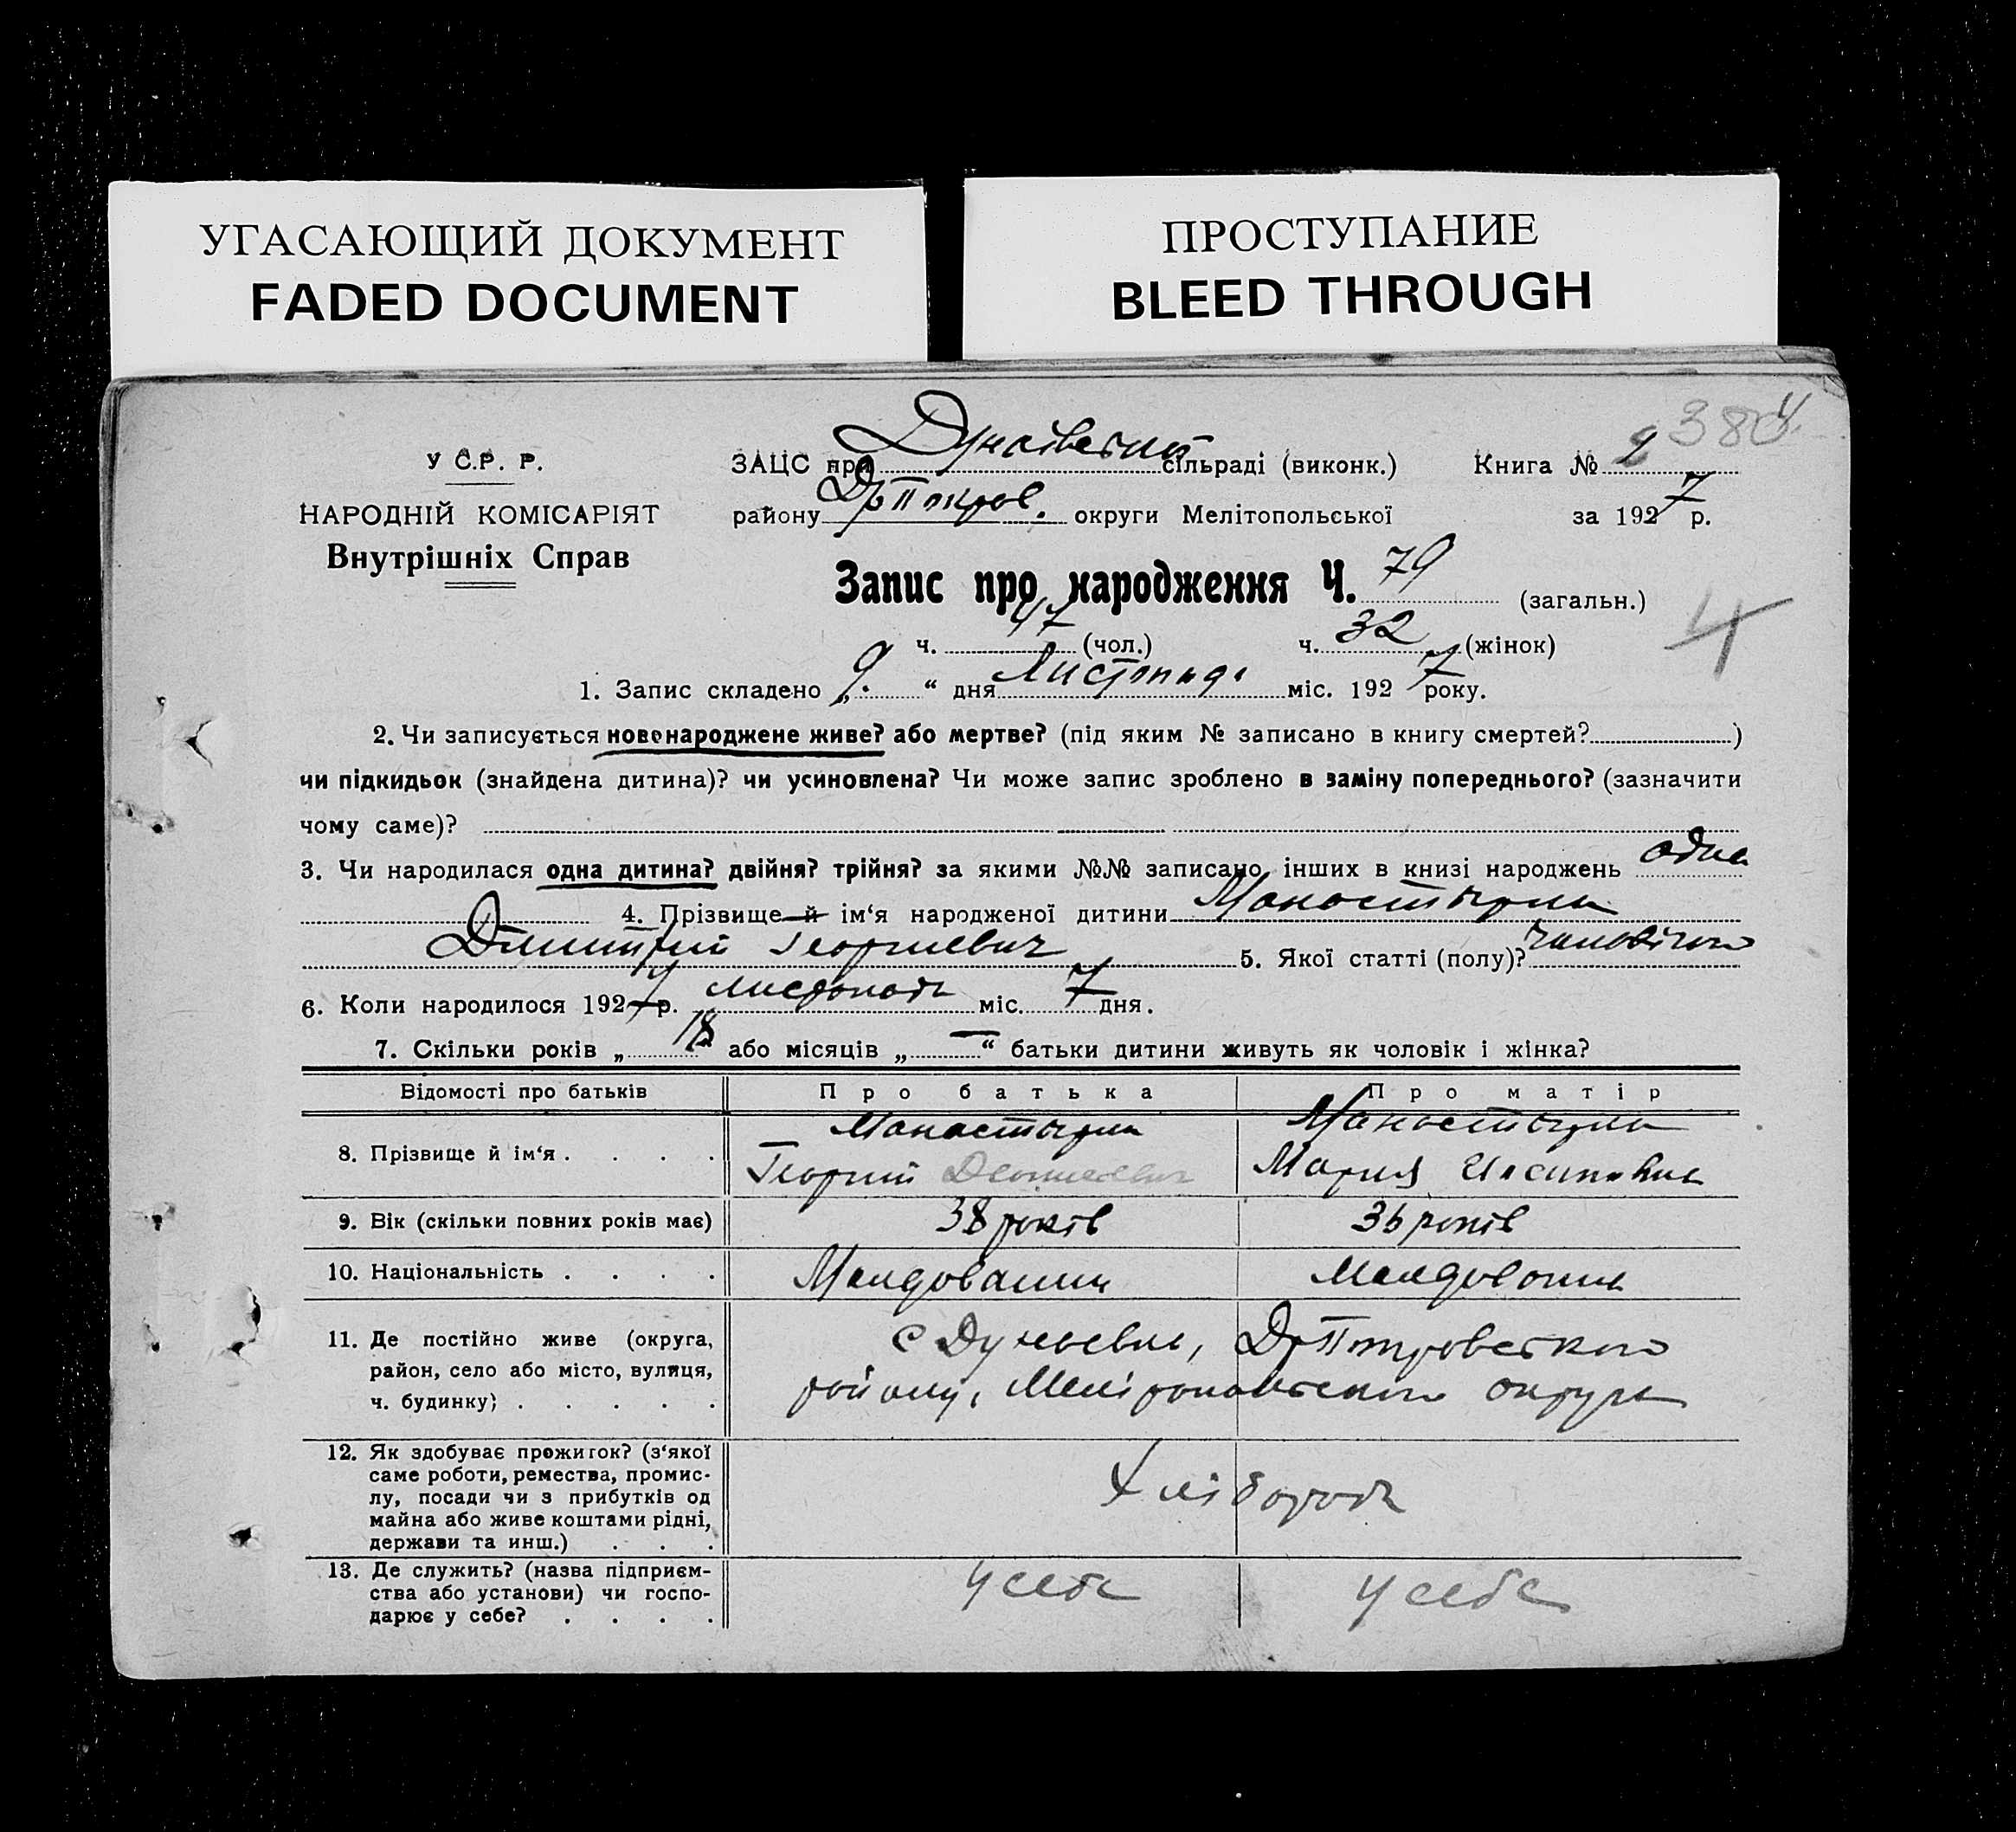 УГАСАЮЩИЙ ДОКУМЕНТ
FADED DOCUMENT
ПРОСТУПАНИЕ
BLEED THROUGH
380
У С.Р. Р.
НАРОДНІЙ КОМІСАРІЯТ
Внутрішніх Справ
ЗАЦС при Дунаївській сільраді (виконк.) Книга № 2
району Др Покров. округи Мелітопольської за 1927 р.
Запис про народження Ч. 79 (загальн.)
ч. 47 (чол.) ч. 32 (жінок)
4
1. Запис складено „9“ дня Листопада міс. 1927 року.
2. Чи записується новонароджене живе? або мертве? (під яким № записано в книгу смертей? )
чи підкидьок (знайдена дитина)? чи усиновлена? Чи може запис зроблено в заміну попереднього? (зазначити
чому саме)?
3. Чи народилася одна дитина? двійня? трійня? за якими №№ записано інших в книзі народжень одна
4. Прізвище й ім‘я народженої дитини Монастырли
Димитрий Георгиевич 5. Якої статті (полу)? чоловічого
6. Коли народилося 1927 р. листопада міс. 7 дня.
7. Скільки років „18“ або місяців „—“ батьки дитини живуть як чоловік і жінка?
Відомості про батьків Про батька Про матір
8. Прізвище й ім‘я . . . . Монастырли Георгий Монастырли Мария
9. Вік (скільки повних років має) 38 років 36 років
10. Національність . . . . Молдованин Молдовани
11. Де постійно живе (округа,
район, село або місто, вулиця,
ч. будинку) . . . . .
с Дунаевка, Др Покровского
району, Мелітопольского округа
12. Як здобуває прожиток? (з‘якої
саме роботи, ремества, промис-
лу, посади чи з прибутків од
майна або живе коштами рідні,
держави та инш.) . . .
Хлібороб
13. Де служить? (назва підприєм-
ства або установи) чи госпо-
дарює у себе? . . . .
у себе у себе